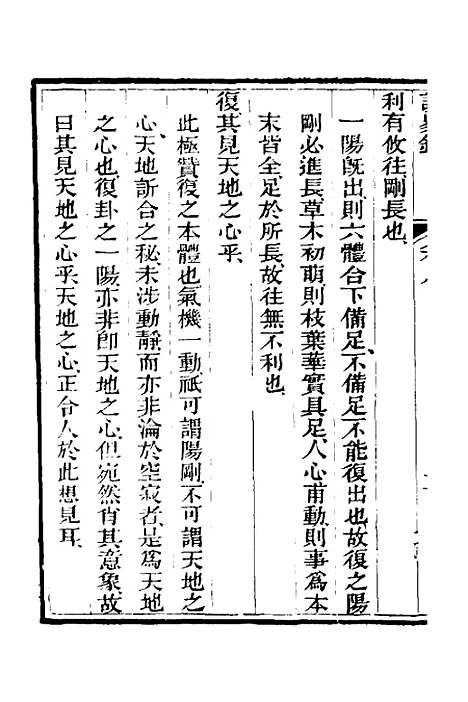 利有攸往剛長也、
一陽旣出、則六體合下備足、不備足、不能復出也、故復之陽
剛必進長、草木初萌、則枝葉華實具足、人心甫動、則事爲本
末皆全、足於所長、故往無不利也、
復其見天地之心乎、
此極贊復之本體也、氣機一動、祗可謂陽剛、不可謂天地之
心、天地訢合之秘、未涉動靜、而亦非淪於空寂者、是爲天地
之心也、復卦之一陽、亦非卽天地之心、但宛然肖其意象、故
曰其見天地之心乎、天地之心、正令人於此想見耳、